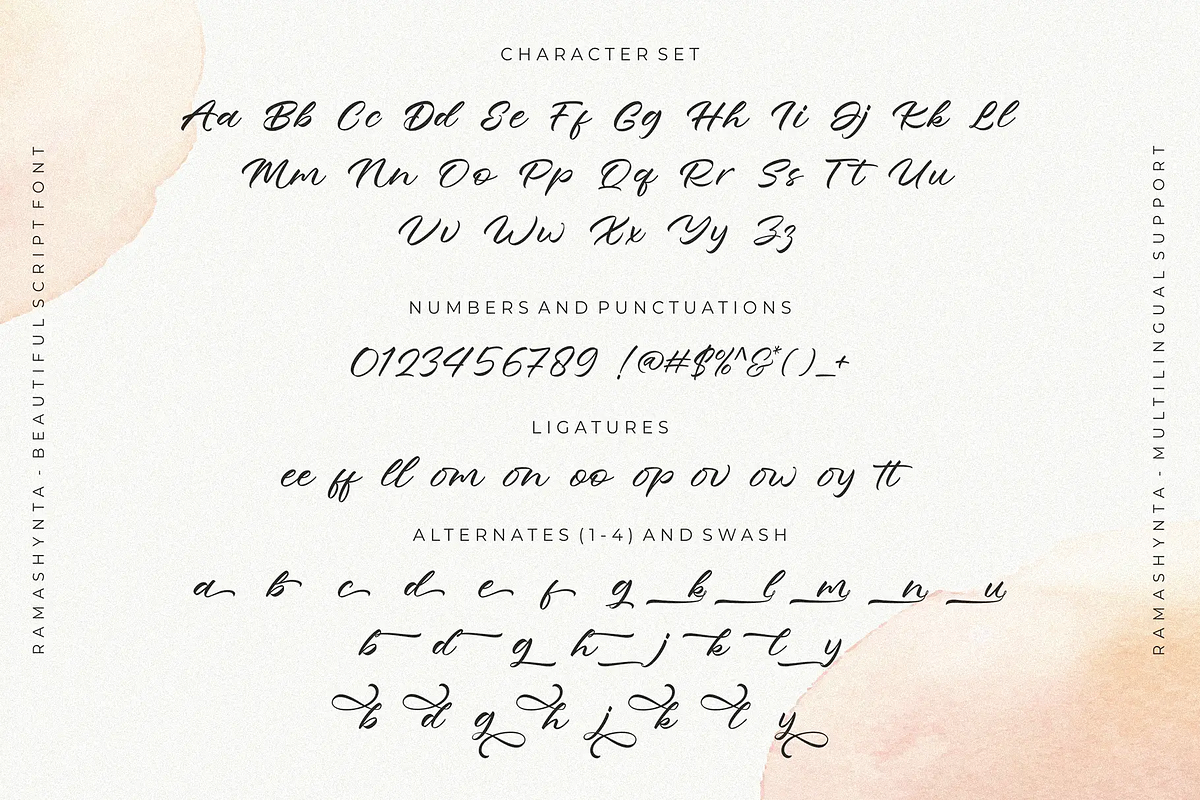 CHARACTER SET
Aa Bb Cc Dd Ee Ff Gg Hh Ii Jj Kk Ll
Mm Nn Oo Pp Qq Rr Ss Tt Uu
Vv Ww Xx Yy Zz
NUMBERS AND PUNCTUATIONS
0123456789 !@#$%^&*()_+
LIGATURES
ee ff ll om on oo op ov ow oy tt
ALTERNATES (1-4) AND SWASH
a b c d e f g k l m n u
b d g h j k l y
b d g h j k l y
RAMASHYNTA - BEAUTIFUL SCRIPT FONT
RAMASHYNTA - MULTILINGUAL SUPPORT